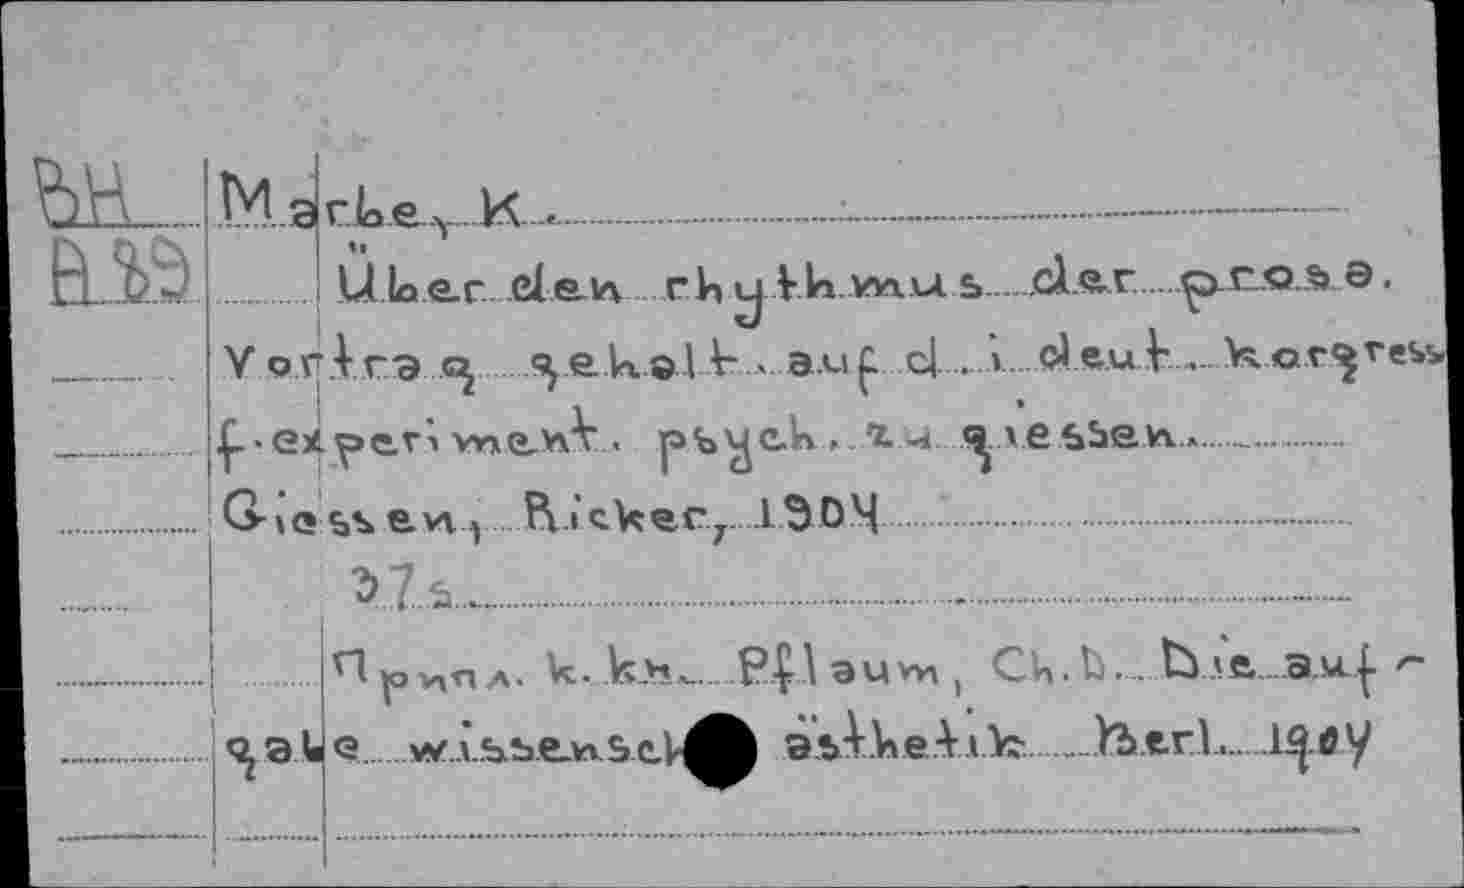 ВН Marbe, K.
А 89 Über den rhythmus der prosa.
Vortrag gehalt. auf d. i. deut. Kongress
f. experiment. psych. zu giessen.
Giessen, Ricker, 1904
37 s.
Припл. к. кн. Pflaum, Ch. D. Die auf-
gabe wissensch ästhetik Berl. 190y